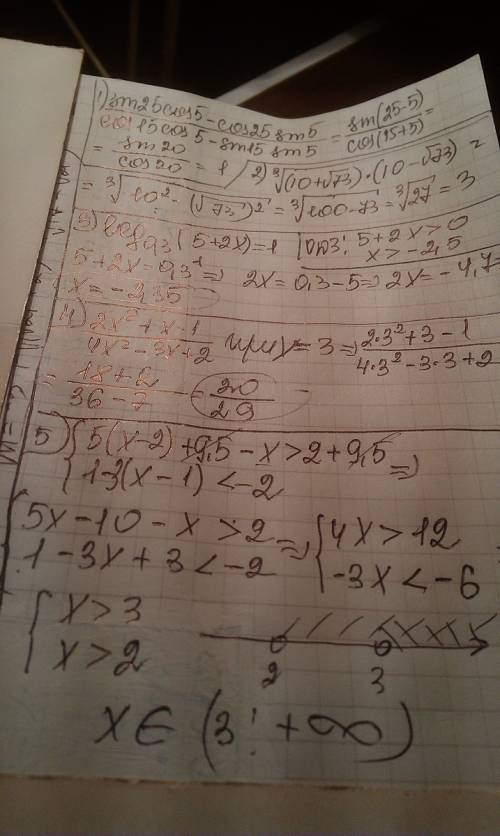 1) sin25cos5 - cos25 sin5 / cos15cos5 - sin15 sin5 = sin(25-5) / cos(15+5) =
= sin20 / cos20 = 1 / 2) ∛(10+√73)·(10-√73) =
= ∛10² - (√73)² = ∛100-73 = ∛27 = 3
3) log₀,₃(5+2x)=1 | ОДЗ: 5+2x>0
x > -2,5
5+2x=0,3¹ => 2x=0,3-5=> 2x=-4,7=
x=-2,35
4) 2x²+x-1 / 4x²-3x+2 при x=3 => 2·3²+3-1 / 4·3²-3·3+2
= 18+2 / 36-7 = 20/29
5) { 5(x-2)+9,5-x>2+9,5 =>
{ 1-3(x-1)<-2
{ 5x-10-x>2 => { 4x>12
1-3x+3<-2 { -3x<-6
{ x>3
x>2
2 3
x∈(3; +∞)